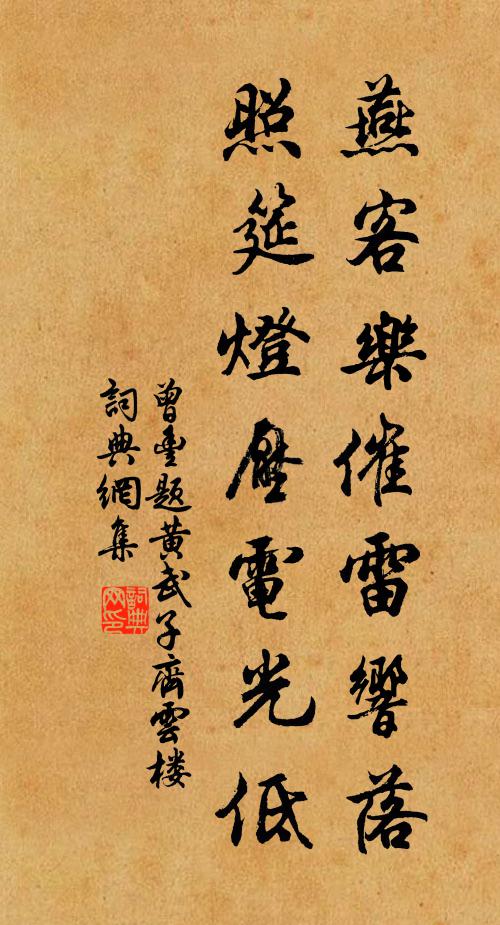 燕客樂催雷響落
照筵燈壓電光低
曾豐題黄武子齊雲楼
詞典網集
詞典
网印